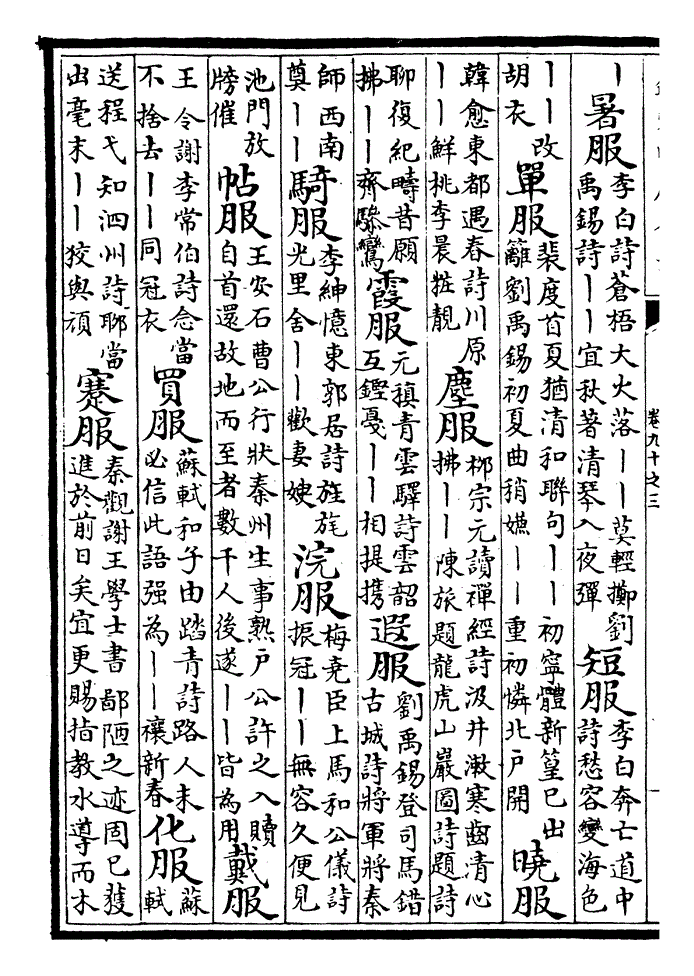 丨暑服李白詩蒼梧大火落丨丨莫輕擲劉禹錫詩丨丨宜秋著清琴入夜彈短服李白奔亡道中詩愁容變海色
丨丨改胡衣單服裴度首夏猶清和聯句丨丨初寧體新篁已出籬劉禹錫初夏曲稍嫌丨丨重初憐北戶開曉服
韓愈東都遇春詩川原丨丨鮮桃李晨粧靚塵服柳宗元讀禪經詩汲井漱寒齒清心拂丨丨陳旅題龍虎山巖圖詩題詩
聊復紀疇昔願拂丨丨齊驂鸞霞服元稹青雲驛詩雲韶互鏗戛丨丨相提携遐服劉禹錫登司馬錯古城詩將軍將秦
師西南奠丨丨騎服李紳憶東郭居詩旌旄光里舍丨丨歡妻嫂浣服梅堯臣上馬和公儀詩振冠丨丨無容久便見
池門放牓催帖服王安石曹公行狀秦州生事熟戶公許之入贖自首還故地而至者數千人後遂丨丨皆為用戴服
王令謝李常伯詩念當不捨去丨丨同冠衣買服蘇軾和子由踏青詩路人未必信此語强為丨丨禳新春化服蘇軾
送程七知泗州詩聊當出毫末丨丨狡與頑蹇服秦觀謝王學士書鄙陋之迹固已獲進於前日矣宜更賜指教水導而木
卷九十之三